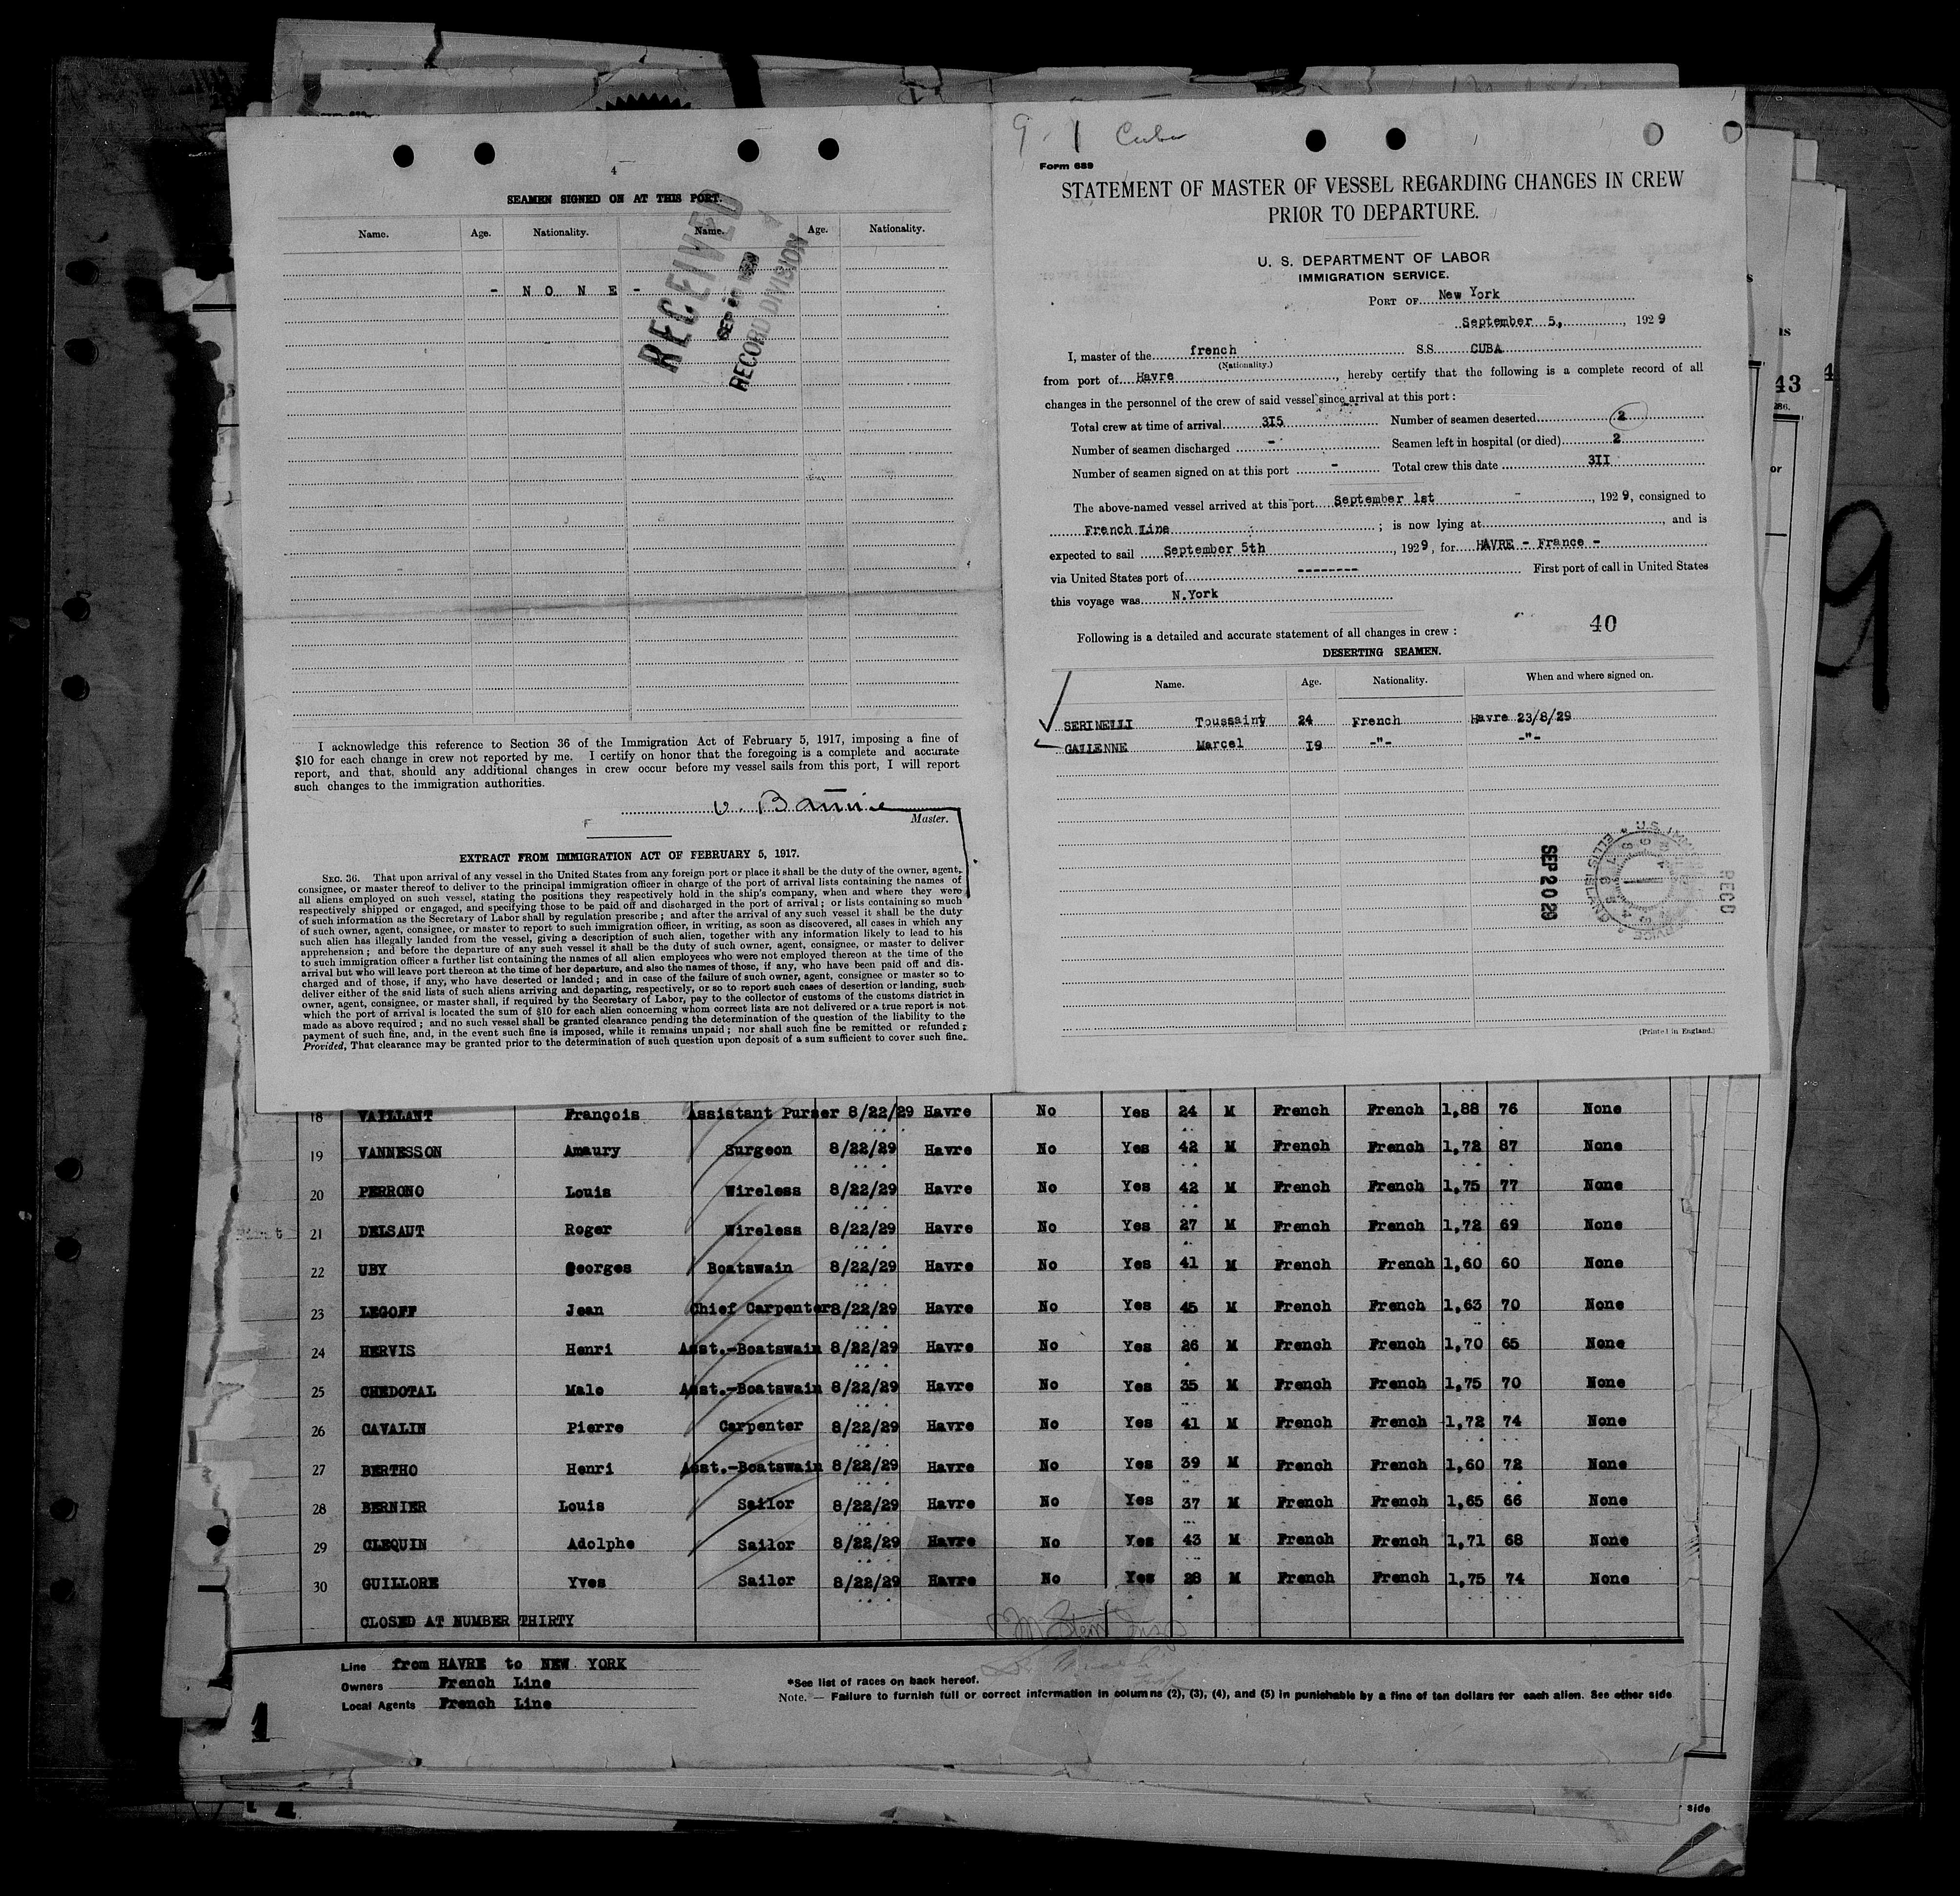 4
SEAMEN SIGNED ON AT THIS PORT.
Name. Age. Nationality. Name. Age. Nationality.
- N O N E -
RECEIVED
SEP
RECORD DIVISION
I acknowledge this reference to Section 36 of the Immigration Act of February 5, 1917, imposing a fine of
$10 for each change in crew not reported by me. I certify on honor that the foregoing is a complete and accurate
report, and that, should any additional changes in crew occur before my vessel sails from this port, I will report
such changes to the immigration authorities.
Master.
EXTRACT FROM IMMIGRATION ACT OF FEBRUARY 5, 1917.
SEC. 36. That upon arrival of any vessel in the United States from any foreign port or place it shall be the duty of the owner, agent,
consignee, or master thereof to deliver to the principal immigration officer in charge of the port of arrival lists containing the names of
all aliens employed on such vessel, stating the positions they respectively hold in the ship's company, when and where they were
respectively shipped or engaged, and specifying those to be paid off and discharged in the port of arrival; or lists containing so much
of such information as the Secretary of Labor shall by regulation prescribe; and after the arrival of any such vessel it shall be the duty
of such owner, agent, consignee, or master to report to such immigration officer, in writing, as soon as discovered, all cases in which any
such alien has illegally landed from the vessel, giving a description of such alien, together with any information likely to lead to his
apprehension; and before the departure of any such vessel it shall be the duty of such owner, agent, consignee, or master to deliver
to such immigration officer a further list containing the names of all alien employees who were not employed thereon at the time of the
arrival but who will leave port thereon at the time of her departure, and also the names of those, if any, who have been paid off and dis-
charged and of those, if any, who have deserted or landed; and in case of the failure of such owner, agent, consignee or master so to
deliver either of the said lists of such aliens arriving and departing, respectively, or so to report such cases of desertion or landing, such
owner, agent, consignee, or master shall, if required by the Secretary of Labor, pay to the collector of customs of the customs district in
which the port of arrival is located the sum of $10 for each alien concerning whom correct lists are not delivered or a true report is not
made as above required; and no such vessel shall be granted clearance pending the determination of the question of the liability to the
payment of such fine, and, in the event such fine is imposed, while it remains unpaid; nor shall such fine be remitted or refunded:
Provided, That clearance may be granted prior to the determination of such question upon deposit of a sum sufficient to cover such fine.
9 - 1 Cuba
Form 689
STATEMENT OF MASTER OF VESSEL REGARDING CHANGES IN CREW
PRIOR TO DEPARTURE.
U. S. DEPARTMENT OF LABOR
IMMIGRATION SERVICE.
PORT OF New York
September 5, , 1929
I, master of the french S.S. CUBA
(Nationality.)
from port of Havre , hereby certify that the following is a complete record of all
changes in the personnel of the crew of said vessel since arrival at this port:
Total crew at time of arrival 3I5 Number of seamen deserted 2
Number of seamen discharged - Seamen left in hospital (or died) 2
Number of seamen signed on at this port - Total crew this date 3II
The above-named vessel arrived at this port September 1st , 1929, consigned to
French Line ; is now lying at , and is
expected to sail September 5th , 1929, for HAVRE - France -
via United States port of -------- First port of call in United States
this voyage was N.York
40
Following is a detailed and accurate statement of all changes in crew:
DESERTING SEAMEN.
Name. Age. Nationality. When and where signed on.
SERINELLI Toussaint 24 French Havre 23/8/29
GALIENNE Marcel I9 -"- -"-
SEP 20 29
RECD
(Printed in England.)
43
18 VAILLANT François Assistant Purser 8/22/29 Havre No Yes 24 M French French 1,88 76 None
19 VANNESSON Amaury Surgeon 8/22/29 Havre No Yes 42 M French French 1,72 87 None
20 PERRONO Louis Wireless 8/22/29 Havre No Yes 42 M French French 1,75 77 None
21 DELSAUT Roger Wireless 8/22/29 Havre No Yes 27 M French French 1,72 69 None
22 UBY Georges Boatswain 8/22/29 Havre No Yes 41 M French French 1,60 60 None
23 LEGOFF Jean Chief Carpenter 8/22/29 Havre No Yes 45 M French French 1,63 70 None
24 HERVIS Henri Asst.-Boatswain 8/22/29 Havre No Yes 26 M French French 1,70 65 None
25 CHEDOTAL Malo Asst.-Boatswain 8/22/29 Havre No Yes 35 M French French 1,75 70 None
26 CAVALIN Pierre Carpenter 8/22/29 Havre No Yes 41 M French French 1,72 74 None
27 BERTHO Henri Asst.-Boatswain 8/22/29 Havre No Yes 39 M French French 1,60 72 None
28 BERNIER Louis Sailor 8/22/29 Havre No Yes 37 M French French 1,65 66 None
29 CLEQUIN Adolphe Sailor 8/22/29 Havre No Yes 43 M French French 1,71 68 None
30 GUILLORE Yves Sailor 8/22/29 Havre No Yes 28 M French French 1,75 74 None
CLOSED AT NUMBER THIRTY
Line from HAVRE to NEW YORK
Owners French Line
Local Agents French Line
*See list of races on back hereof.
Note. — Failure to furnish full or correct information in columns (2), (3), (4), and (5) in punishable by a fine of ten dollars for each alien. See other side
1
side
9